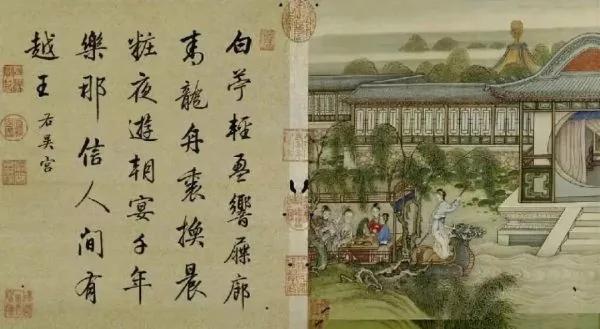 白苧輕盈響屧廊
青龍舟裏換晨
粧夜遊朝宴千年
樂那信人間有
越王 右吳宮